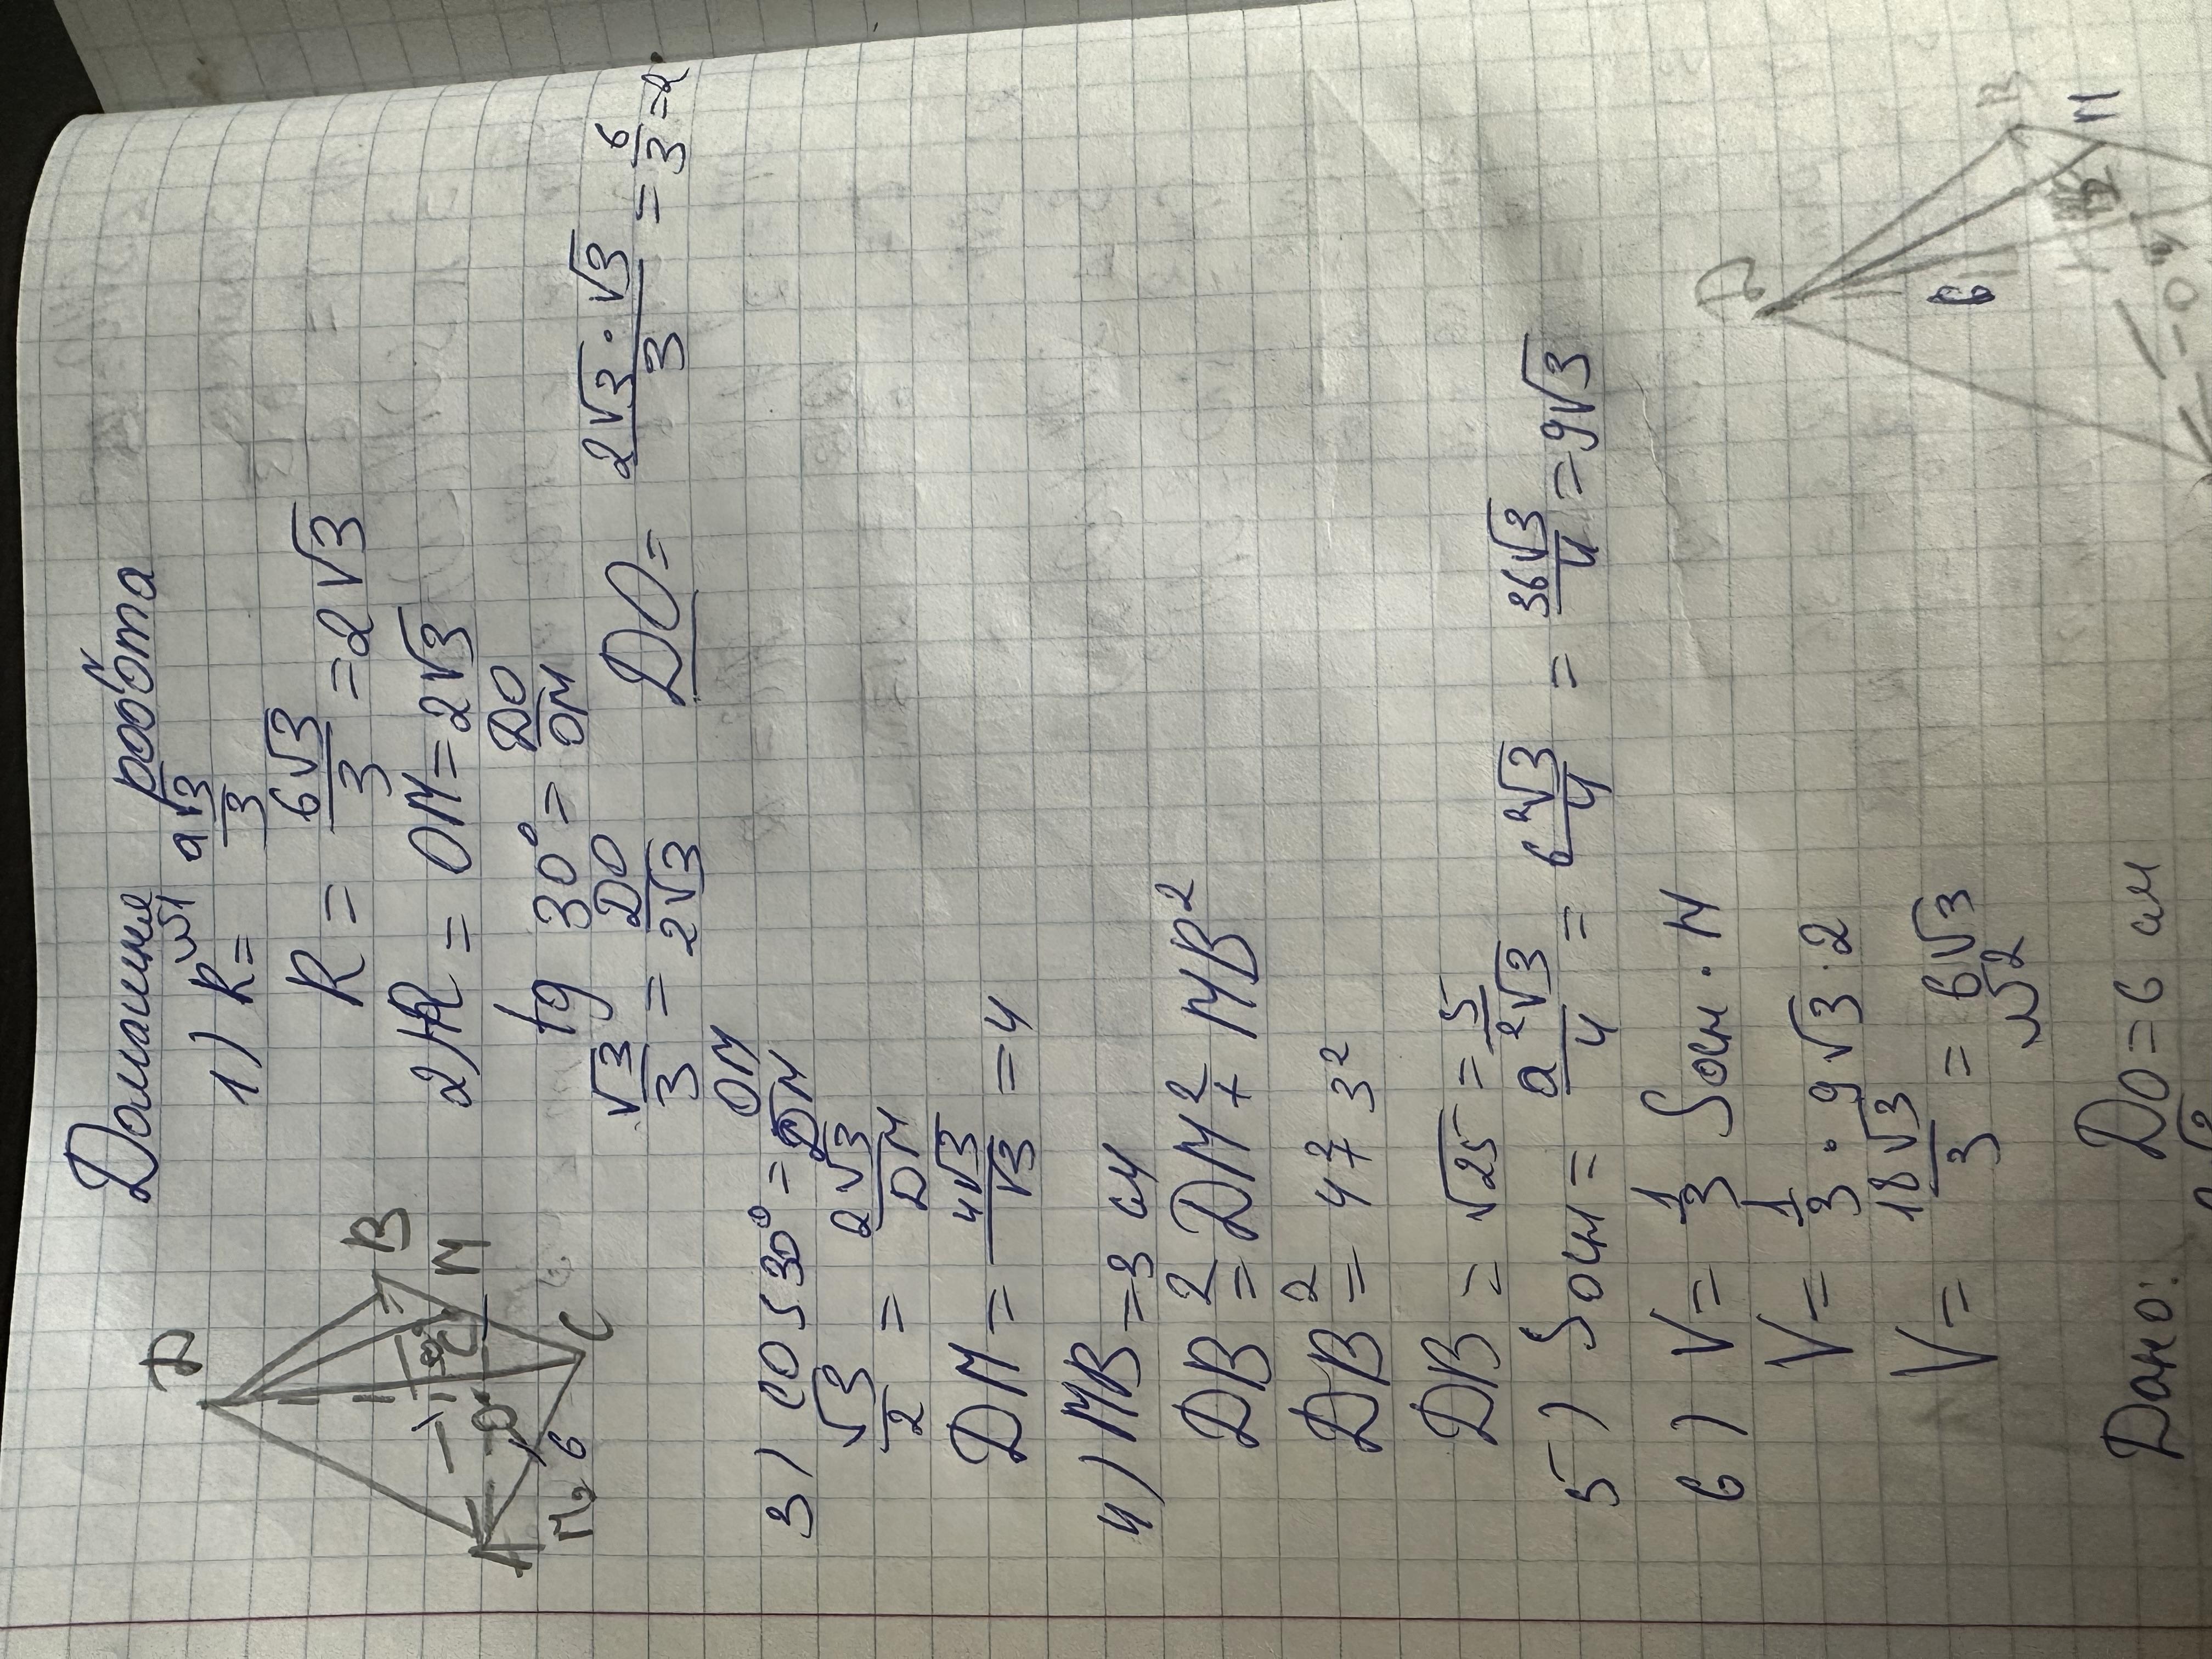 Домашня робота
№1
1) R = a√3/3
R = 6√3/3 = 2√3
2) R = OM = 2√3
tg 30° = DO/OM
√3/3 = DO/2√3 DO = 2√3·√3/3 = 6/3 = 2
3) cos 30° = OM/DM
√3/2 = 2√3/DM
DM = 4√3/√3 = 4
4) MB = 3 см
DB² = DM² + MB²
DB² = 4² + 3²
DB = √25 = 5
5) Sосн = a²√3/4 = 6²√3/4 = 36√3/4 = 9√3
6) V = 1/3 Sосн · H
V = 1/3 · 9√3 · 2
V = 18√3/3 = 6√3
№2
Дано: DO = 6 см
D
B
M
C
A
O
6
D
B
M
6
O